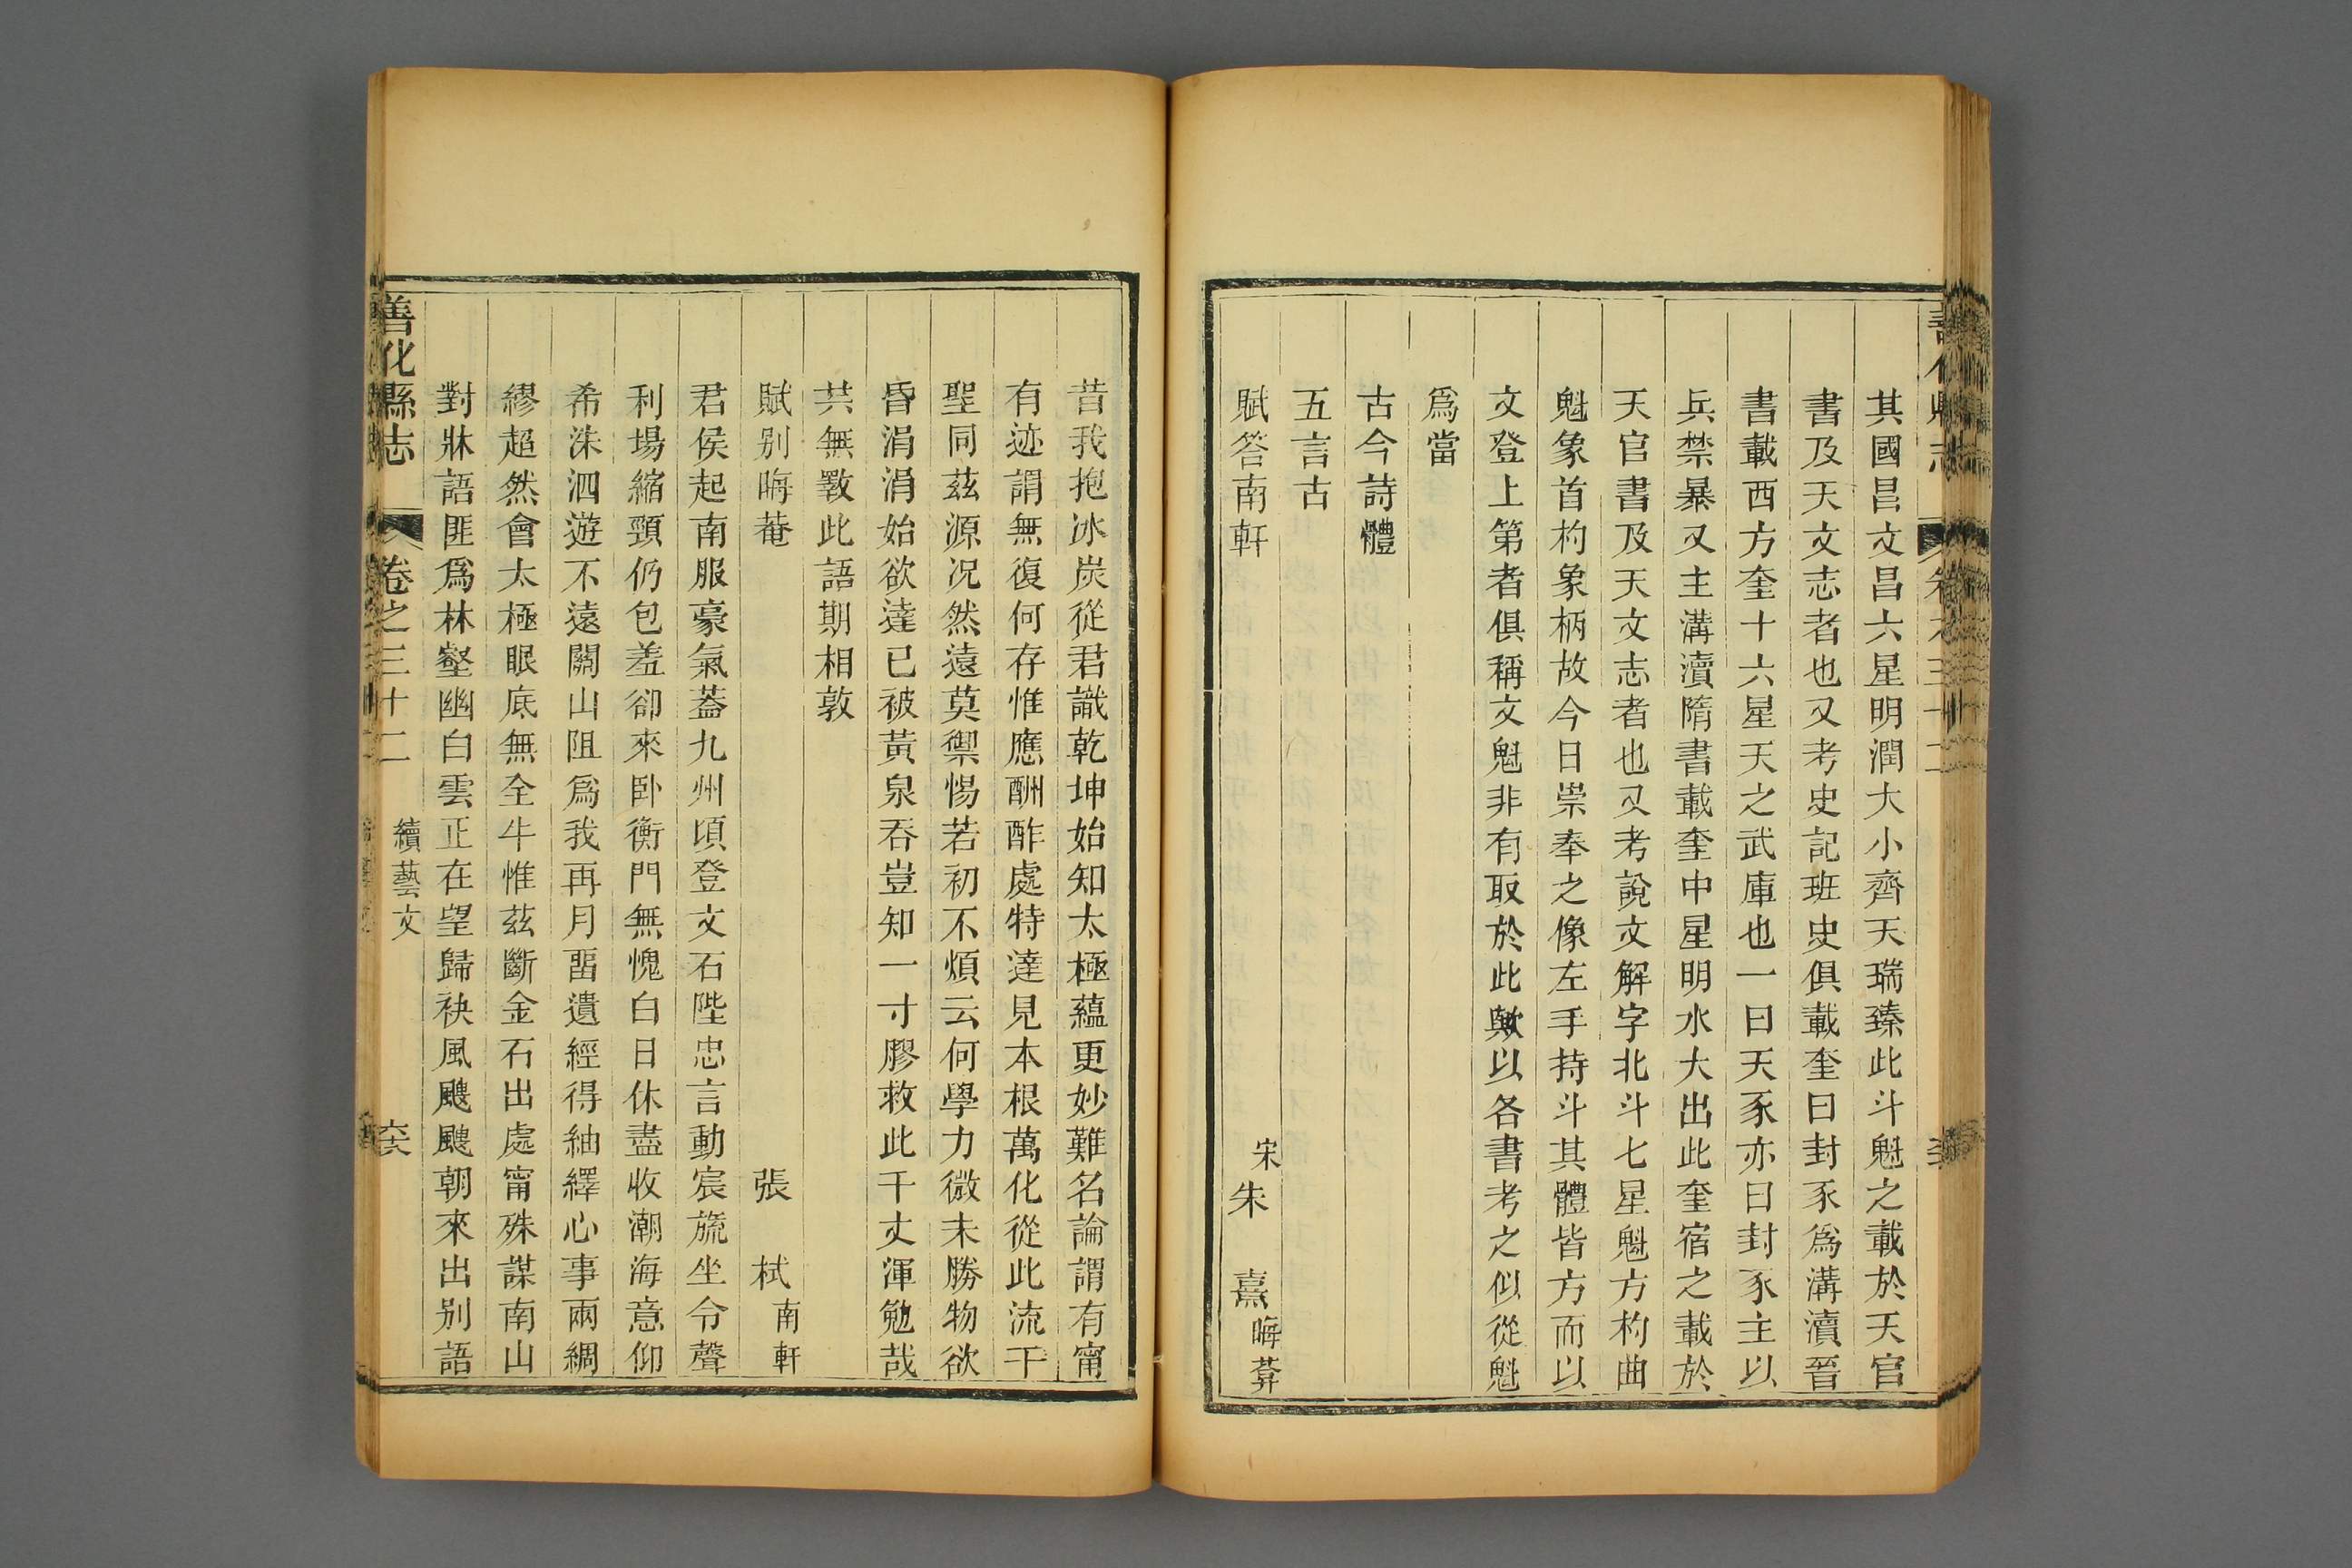 其國昌文昌六星明潤大小齊天瑞臻此斗魁之載於天官
書及天文志者也又考史記班史俱載奎曰封豕爲溝瀆晉
書載西方奎十六星天之武庫也一曰天豕亦曰封豕主以
兵禁暴又主溝瀆隋書載奎中星明水大出此奎宿之載於
天官書及天文志者也又考說文解字北斗七星魁方杓曲
魁象首杓象柄故今日崇奉之像左手持斗其體皆方而以
文登上第者俱稱文魁非有取於此歟以各書考之似從魁
爲當
古今詩體
五言古
賦答南軒 宋朱 熹晦菴
昔我抱冰炭從君識乾坤始知太極蘊更妙難名論謂有甯
有迹謂無復何存惟應酬酢處特達見本根萬化從此流千
聖同茲源況然遠莫禦惕若初不煩云何學力微未勝物欲
昏涓涓始欲達已被黃泉吞豈知一寸膠救此千丈渾勉哉
共無斁此語期相敦
賦别晦菴 張 栻南軒
君侯起南服豪氣蓋九州頃登文石陛忠言動宸旒坐令聲
利場縮頸仍包羞卻來臥衡門無愧白日休盡收潮海意仰
希洙泗遊不遠關山阻爲我再月畱遺經得紬繹心事兩綢
繆超然會太極眼底無全牛惟茲斷金石出處甯殊謀南山
對牀語匪爲林壑幽白雲正在望歸袂風颼颼朝來出别語
善化縣志 卷之三十二 續藝文 六六